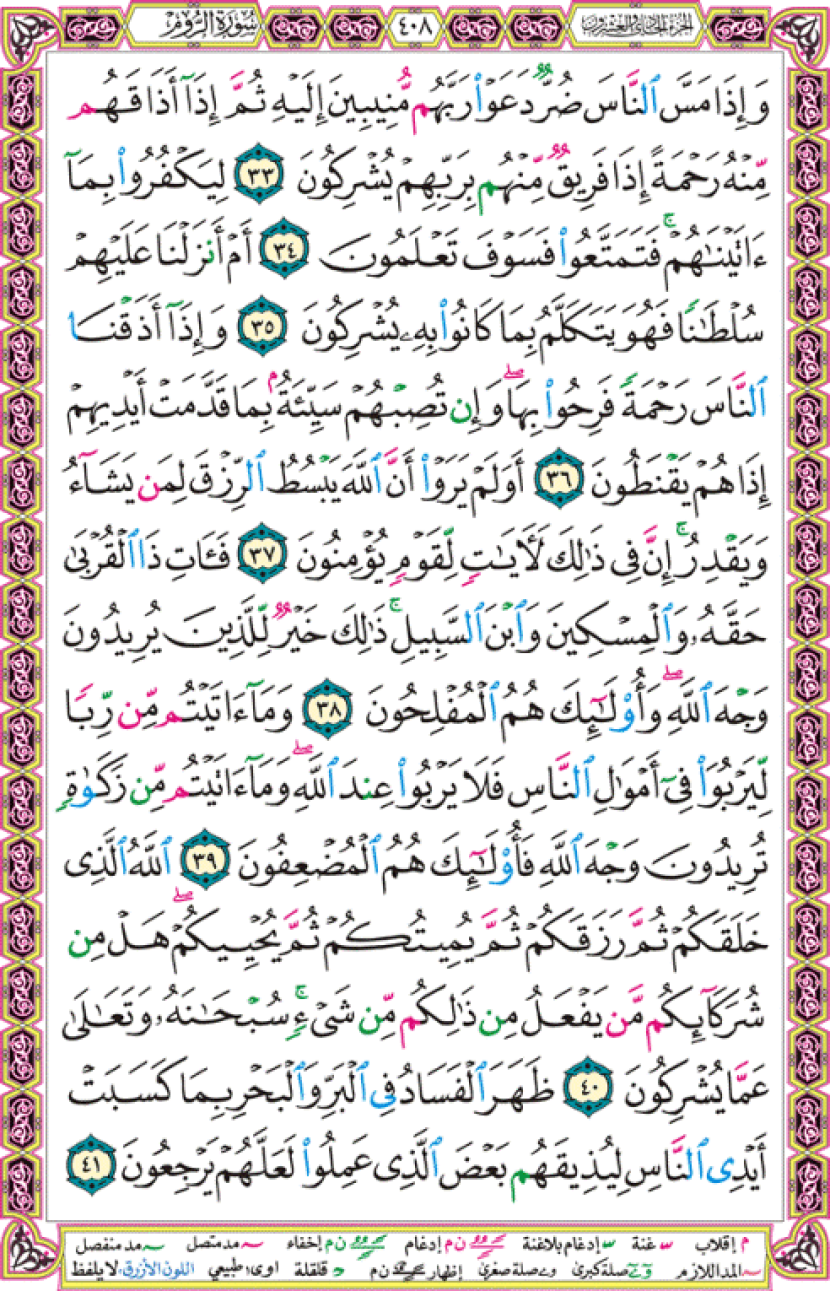 سُورَةُ الرُّومِ ٤٠٨ الجزء الحادى والعشرون
وَإِذَا مَسَّ ٱلنَّاسَ ضُرٌّ دَعَوْا۟ رَبَّهُم مُّنِيبِينَ إِلَيْهِ ثُمَّ إِذَآ أَذَاقَهُم
مِّنْهُ رَحْمَةً إِذَا فَرِيقٌ مِّنْهُم بِرَبِّهِمْ يُشْرِكُونَ ٣٣ لِيَكْفُرُوا۟ بِمَآ
ءَاتَيْنَٰهُمْ ۚ فَتَمَتَّعُوا۟ فَسَوْفَ تَعْلَمُونَ ٣٤ أَمْ أَنزَلْنَا عَلَيْهِمْ
سُلْطَٰنًا فَهُوَ يَتَكَلَّمُ بِمَا كَانُوا۟ بِهِۦ يُشْرِكُونَ ٣٥ وَإِذَآ أَذَقْنَا
ٱلنَّاسَ رَحْمَةً فَرِحُوا۟ بِهَا ۖ وَإِن تُصِبْهُمْ سَيِّئَةٌۢ بِمَا قَدَّمَتْ أَيْدِيهِمْ
إِذَا هُمْ يَقْنَطُونَ ٣٦ أَوَلَمْ يَرَوْا۟ أَنَّ ٱللَّهَ يَبْسُطُ ٱلرِّزْقَ لِمَن يَشَآءُ
وَيَقْدِرُ ۚ إِنَّ فِى ذَٰلِكَ لَءَايَٰتٍ لِّقَوْمٍ يُؤْمِنُونَ ٣٧ فَـَٔاتِ ذَا ٱلْقُرْبَىٰ
حَقَّهُۥ وَٱلْمِسْكِينَ وَٱبْنَ ٱلسَّبِيلِ ۚ ذَٰلِكَ خَيْرٌ لِّلَّذِينَ يُرِيدُونَ
وَجْهَ ٱللَّهِ ۖ وَأُو۟لَٰٓئِكَ هُمُ ٱلْمُفْلِحُونَ ٣٨ وَمَآ ءَاتَيْتُم مِّن رِّبًا
لِّيَرْبُوَا۟ فِىٓ أَمْوَٰلِ ٱلنَّاسِ فَلَا يَرْبُوا۟ عِندَ ٱللَّهِ ۖ وَمَآ ءَاتَيْتُم مِّن زَكَوٰةٍ
تُرِيدُونَ وَجْهَ ٱللَّهِ فَأُو۟لَٰٓئِكَ هُمُ ٱلْمُضْعِفُونَ ٣٩ ٱللَّهُ ٱلَّذِى
خَلَقَكُمْ ثُمَّ رَزَقَكُمْ ثُمَّ يُمِيتُكُمْ ثُمَّ يُحْيِيكُمْ ۖ هَلْ مِن
شُرَكَآئِكُم مَّن يَفْعَلُ مِن ذَٰلِكُم مِّن شَىْءٍ ۚ سُبْحَٰنَهُۥ وَتَعَٰلَىٰ
عَمَّا يُشْرِكُونَ ٤٠ ظَهَرَ ٱلْفَسَادُ فِى ٱلْبَرِّ وَٱلْبَحْرِ بِمَا كَسَبَتْ
أَيْدِى ٱلنَّاسِ لِيُذِيقَهُم بَعْضَ ٱلَّذِى عَمِلُوا۟ لَعَلَّهُمْ يَرْجِعُونَ ٤١
م إقلاب غنة إدغام بلاغنة ن م إدغام ن م إخفاء مد متصل مد منفصل
المد اللازم صلة كبرى صلة صغرى إظهار ن م قلقلة اوى: طبيعي اللون الأزرق: لا يلفظ